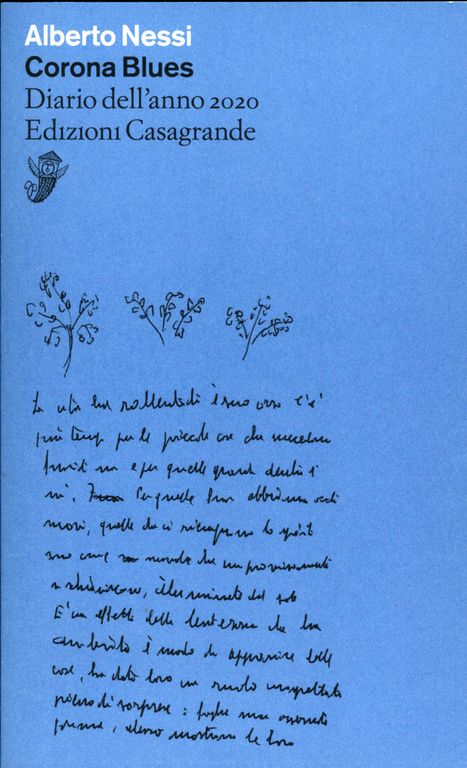 Alberto Nessi
Corona Blues
Diario dell'anno 2020
Edizioni Casagrande
La vita ha rallentato il suo corso c'è
più tempo per le piccole cose che succedono
fuori e per quelle grandi dentro di
noi. Per quelle
quelle che ci riempiono lo spirito
sono come nuvole che improvvisamente
si schiariscono, illuminate dal sole
E' un effetto della lentezza che ha
cambiato il modo di apparire delle
cose, ha dato loro un ruolo inaspettato
pieno di sorprese: foglie mai osservate
prima, mostrano le loro